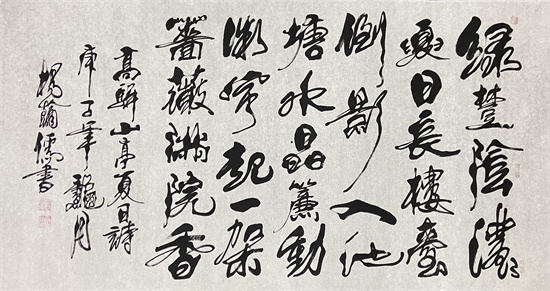 緑樹陰濃
夏日長樓臺
倒影入池
塘水晶簾動
微風起一架
薔薇滿院香
高駢山亭夏日詩
庚子年月
楊儒書